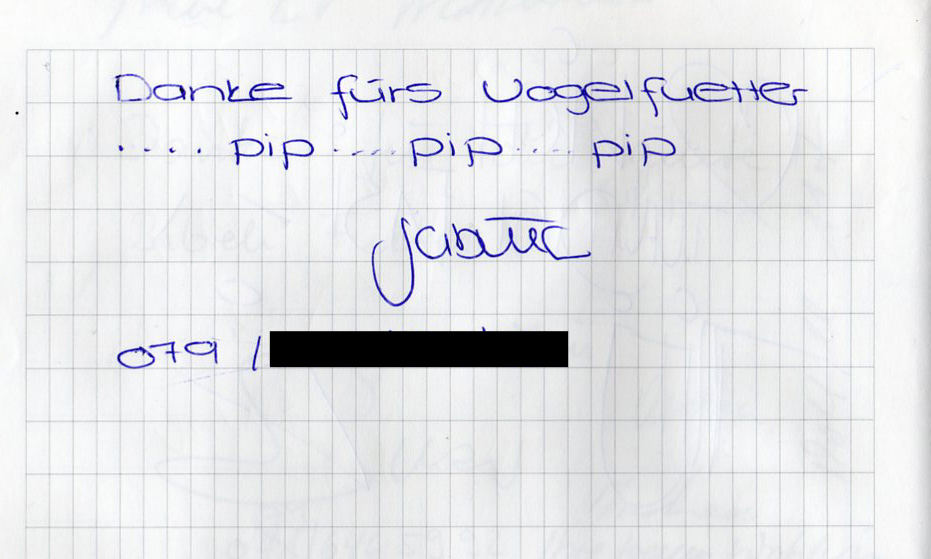 Danke fürs Vogelfuetter
.... pip .... pip .... pip
079 /